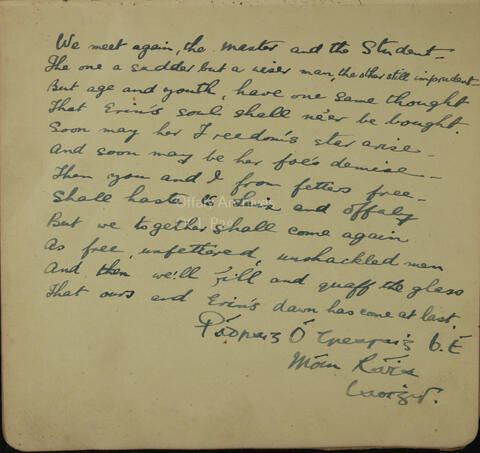 We meet again, the Master and the Student –
The one a sadder but a wiser man, the other still imprudent –
But age and youth, have one same thought
That Erin's soul shall ne'er be bought.
Soon may her Freedom's star arise –
And soon may be her foe's demise –
Then you and I from fetters free –
Shall haste to and offaly
But we together shall come again
As free, unfettered, unshackled men
And then we'll fill and quaff the glass
That ours and Erin's dawn has come at last.
Pádraig Ó B.E
Móin Ráta
Laoigis.
Offaly Archives